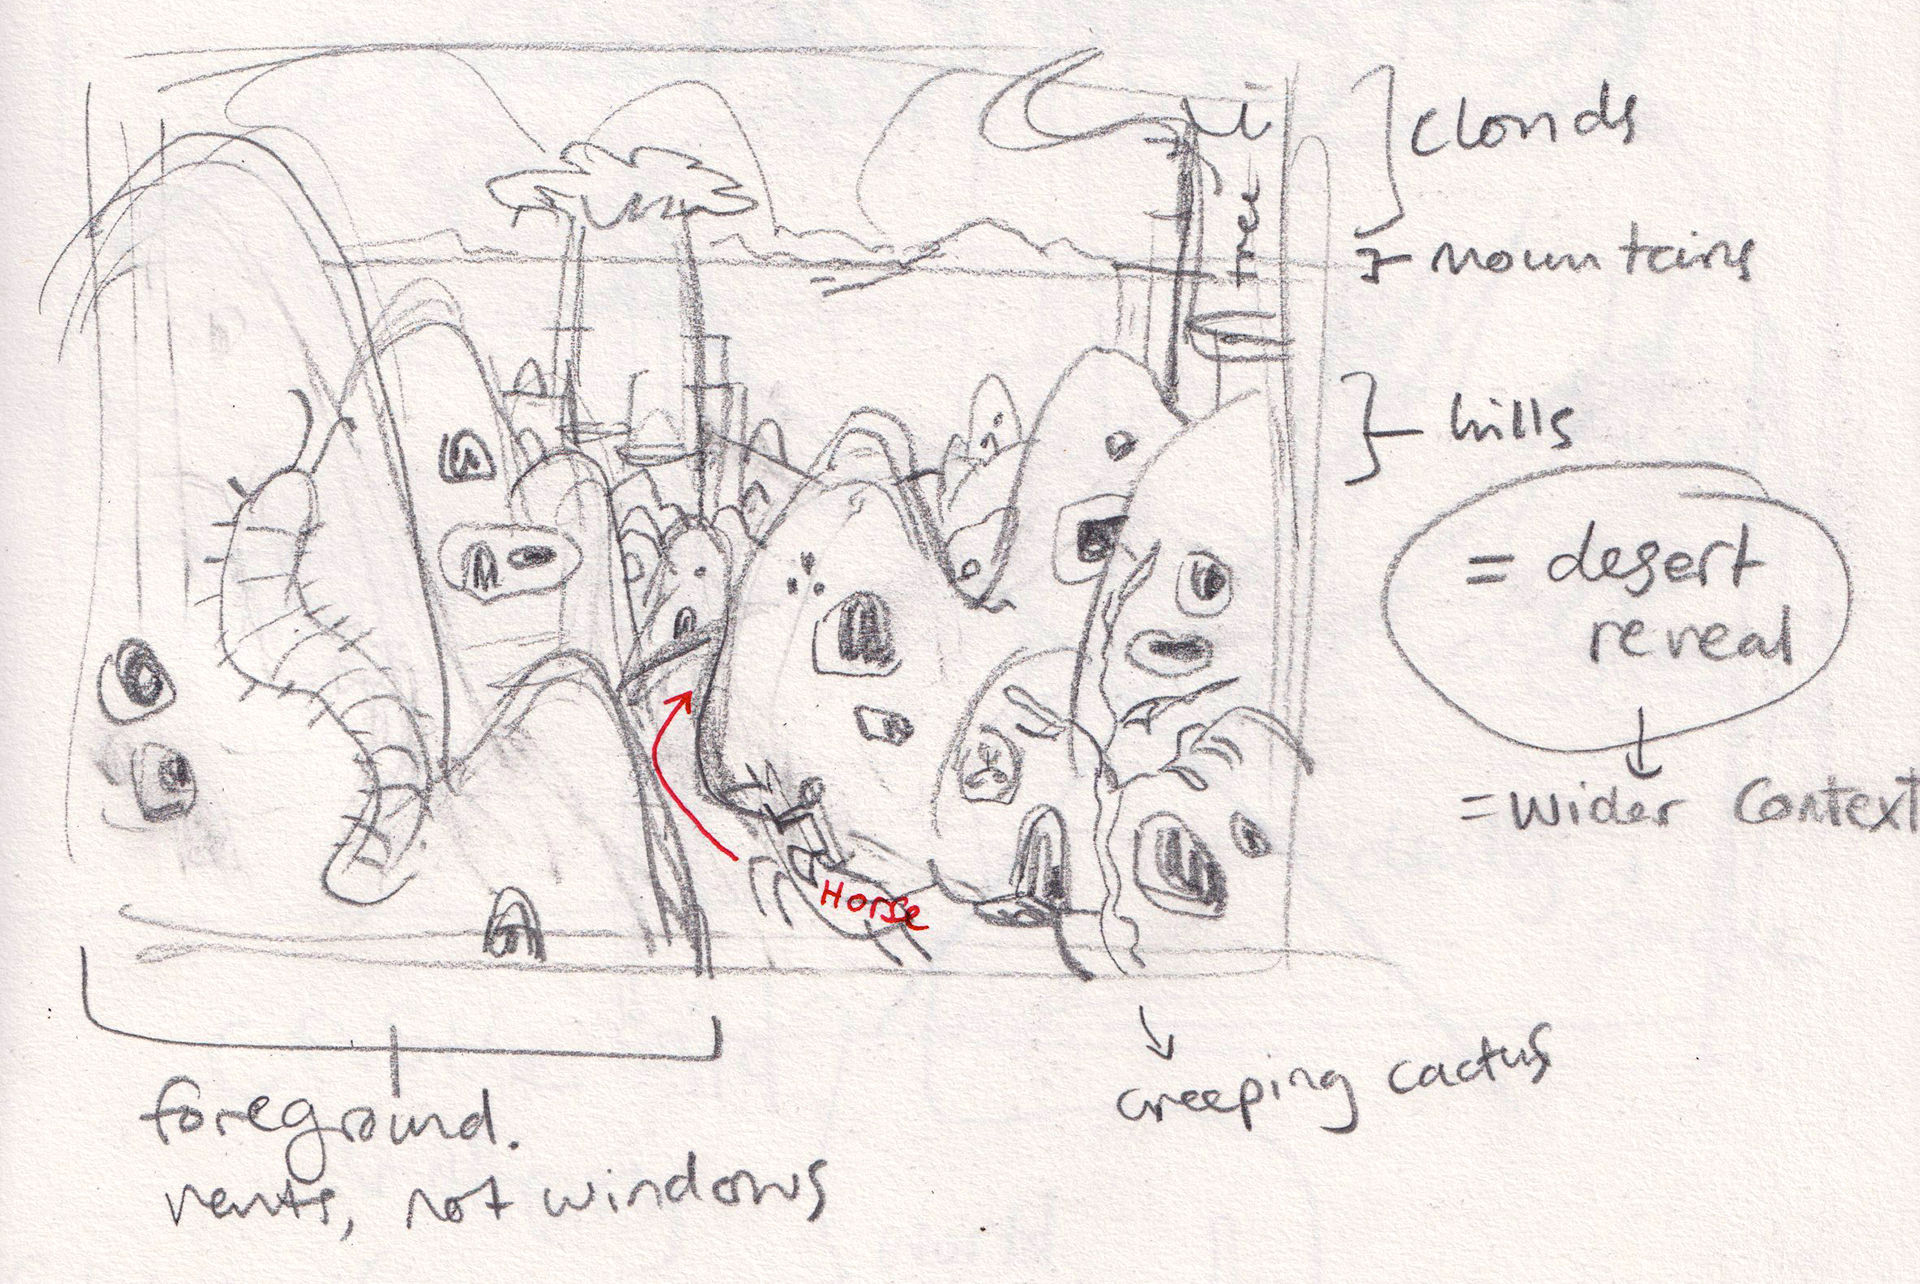 clouds
tree
mountains
hills
= desert
reveal
= wider context
Horse
creeping cactus
foreground.
vents, not windows